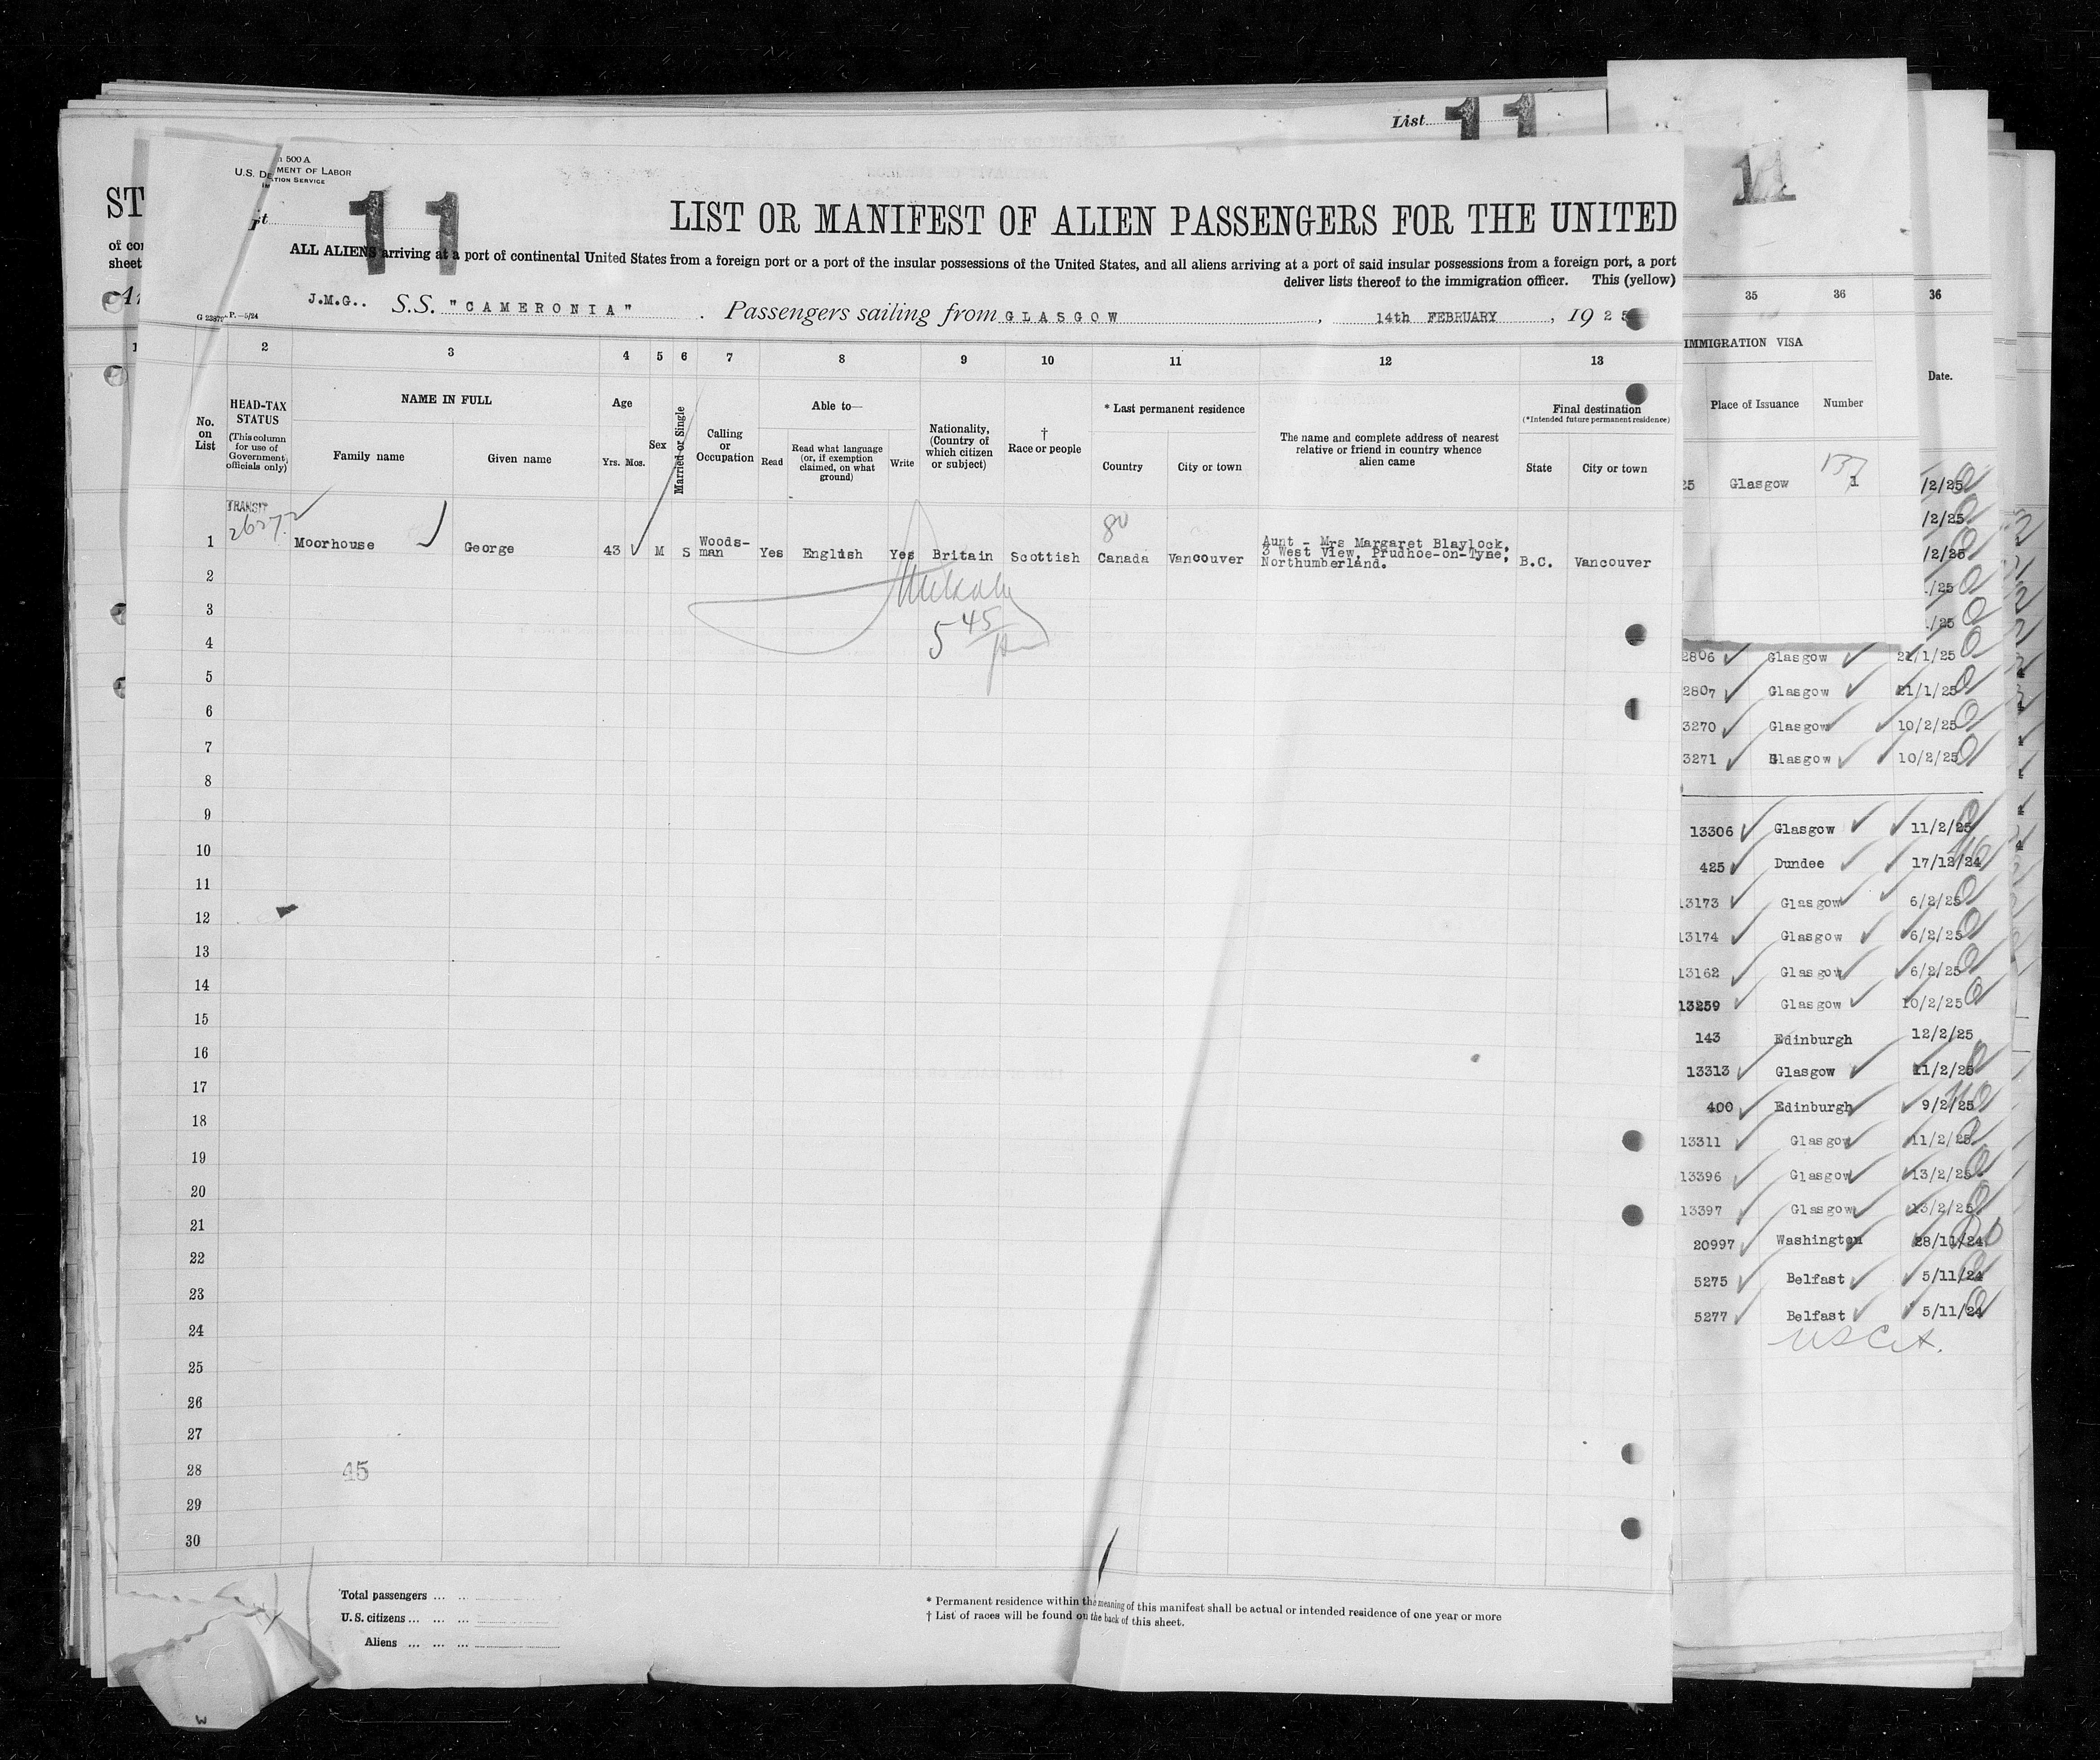 List 11
11
500 A
U.S. DE MENT OF LABOR
TION SERVICE
11
ST
LIST OR MANIFEST OF ALIEN PASSENGERS FOR THE UNITED
ALL ALIENS arriving at a port of continental United States from a foreign port or a port of the insular possessions of the United States, and all aliens arriving at a port of said insular possessions from a foreign port, a port
deliver lists thereof to the immigration officer. This (yellow)
of co
sheet
J.M.G.. S.S. "CAMERONIA" . Passengers sailing from GLASGOW, 14th FEBRUARY, 1925
P.—5/24
2 3 4 5 6 7 8 9 10 11 12 13
35 36 36
IMMIGRATION VISA
Place of Issuance Number Date.
No. on List
HEAD-TAX STATUS
(This column for use of Government officials only)
NAME IN FULL
Family name Given name
Age
Yrs. Mos.
Sex
Married or Single
Calling or Occupation
Able to—
Read
Read what language (or, if exemption claimed, on what ground)
Write
Nationality, (Country of which citizen or subject)
† Race or people
* Last permanent residence
Country City or town
The name and complete address of nearest relative or friend in country whence alien came
Final destination
(*Intended future permanent residence)
State City or town
TRANSIT
80
1 Moorhouse George 43 M S Woods-man Yes English Yes Britain Scottish Canada Vancouver Aunt - Mrs Margaret Blaylock, 3 West View, Prudhoe-on-Tyne, Northumberland. B.C. Vancouver
5 45
2
3
4
5
6
7
8
9
10
11
12
13
14
15
16
17
18
19
20
21
22
23
24
25
26
27
28
29
30
45
25 Glasgow 1
/2/25
/2/25
/2/25
/25
/25
2806 Glasgow 21/1/25
2807 Glasgow 21/1/25
3270 Glasgow 10/2/25
3271 Glasgow 10/2/25
13306 Glasgow 11/2/25
425 Dundee 17/12/24
13173 Glasgow 6/2/25
13174 Glasgow 6/2/25
13162 Glasgow 6/2/25
13259 Glasgow 10/2/25
143 Edinburgh 12/2/25
13313 Glasgow 11/2/25
400 Edinburgh 9/2/25
13311 Glasgow 11/2/25
13396 Glasgow 13/2/25
13397 Glasgow 13/2/25
20997 Washington 28/11/24
5275 Belfast 5/11/24
5277 Belfast 5/11/24
Total passengers ... ...
U.S. citizens ... ... ...
Aliens ... ... ...
* Permanent residence within the meaning of this manifest shall be actual or intended residence of one year or more
† List of races will be found on the back of this sheet.